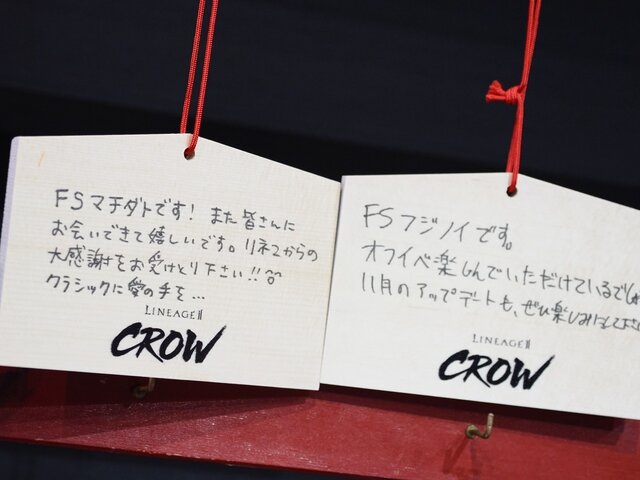 FSマチダトです! また皆さんに
お会いできて嬉しいです。リネ2からの
大感謝をお受けとり下さい!!
クラシックに愛の手を…
LINEAGE II
CROW
FSフジノイです。
オフイベ楽しんでいただけているでしょ
11月のアップデートも、ぜひ楽しみにして
LINEAGE II
CROW